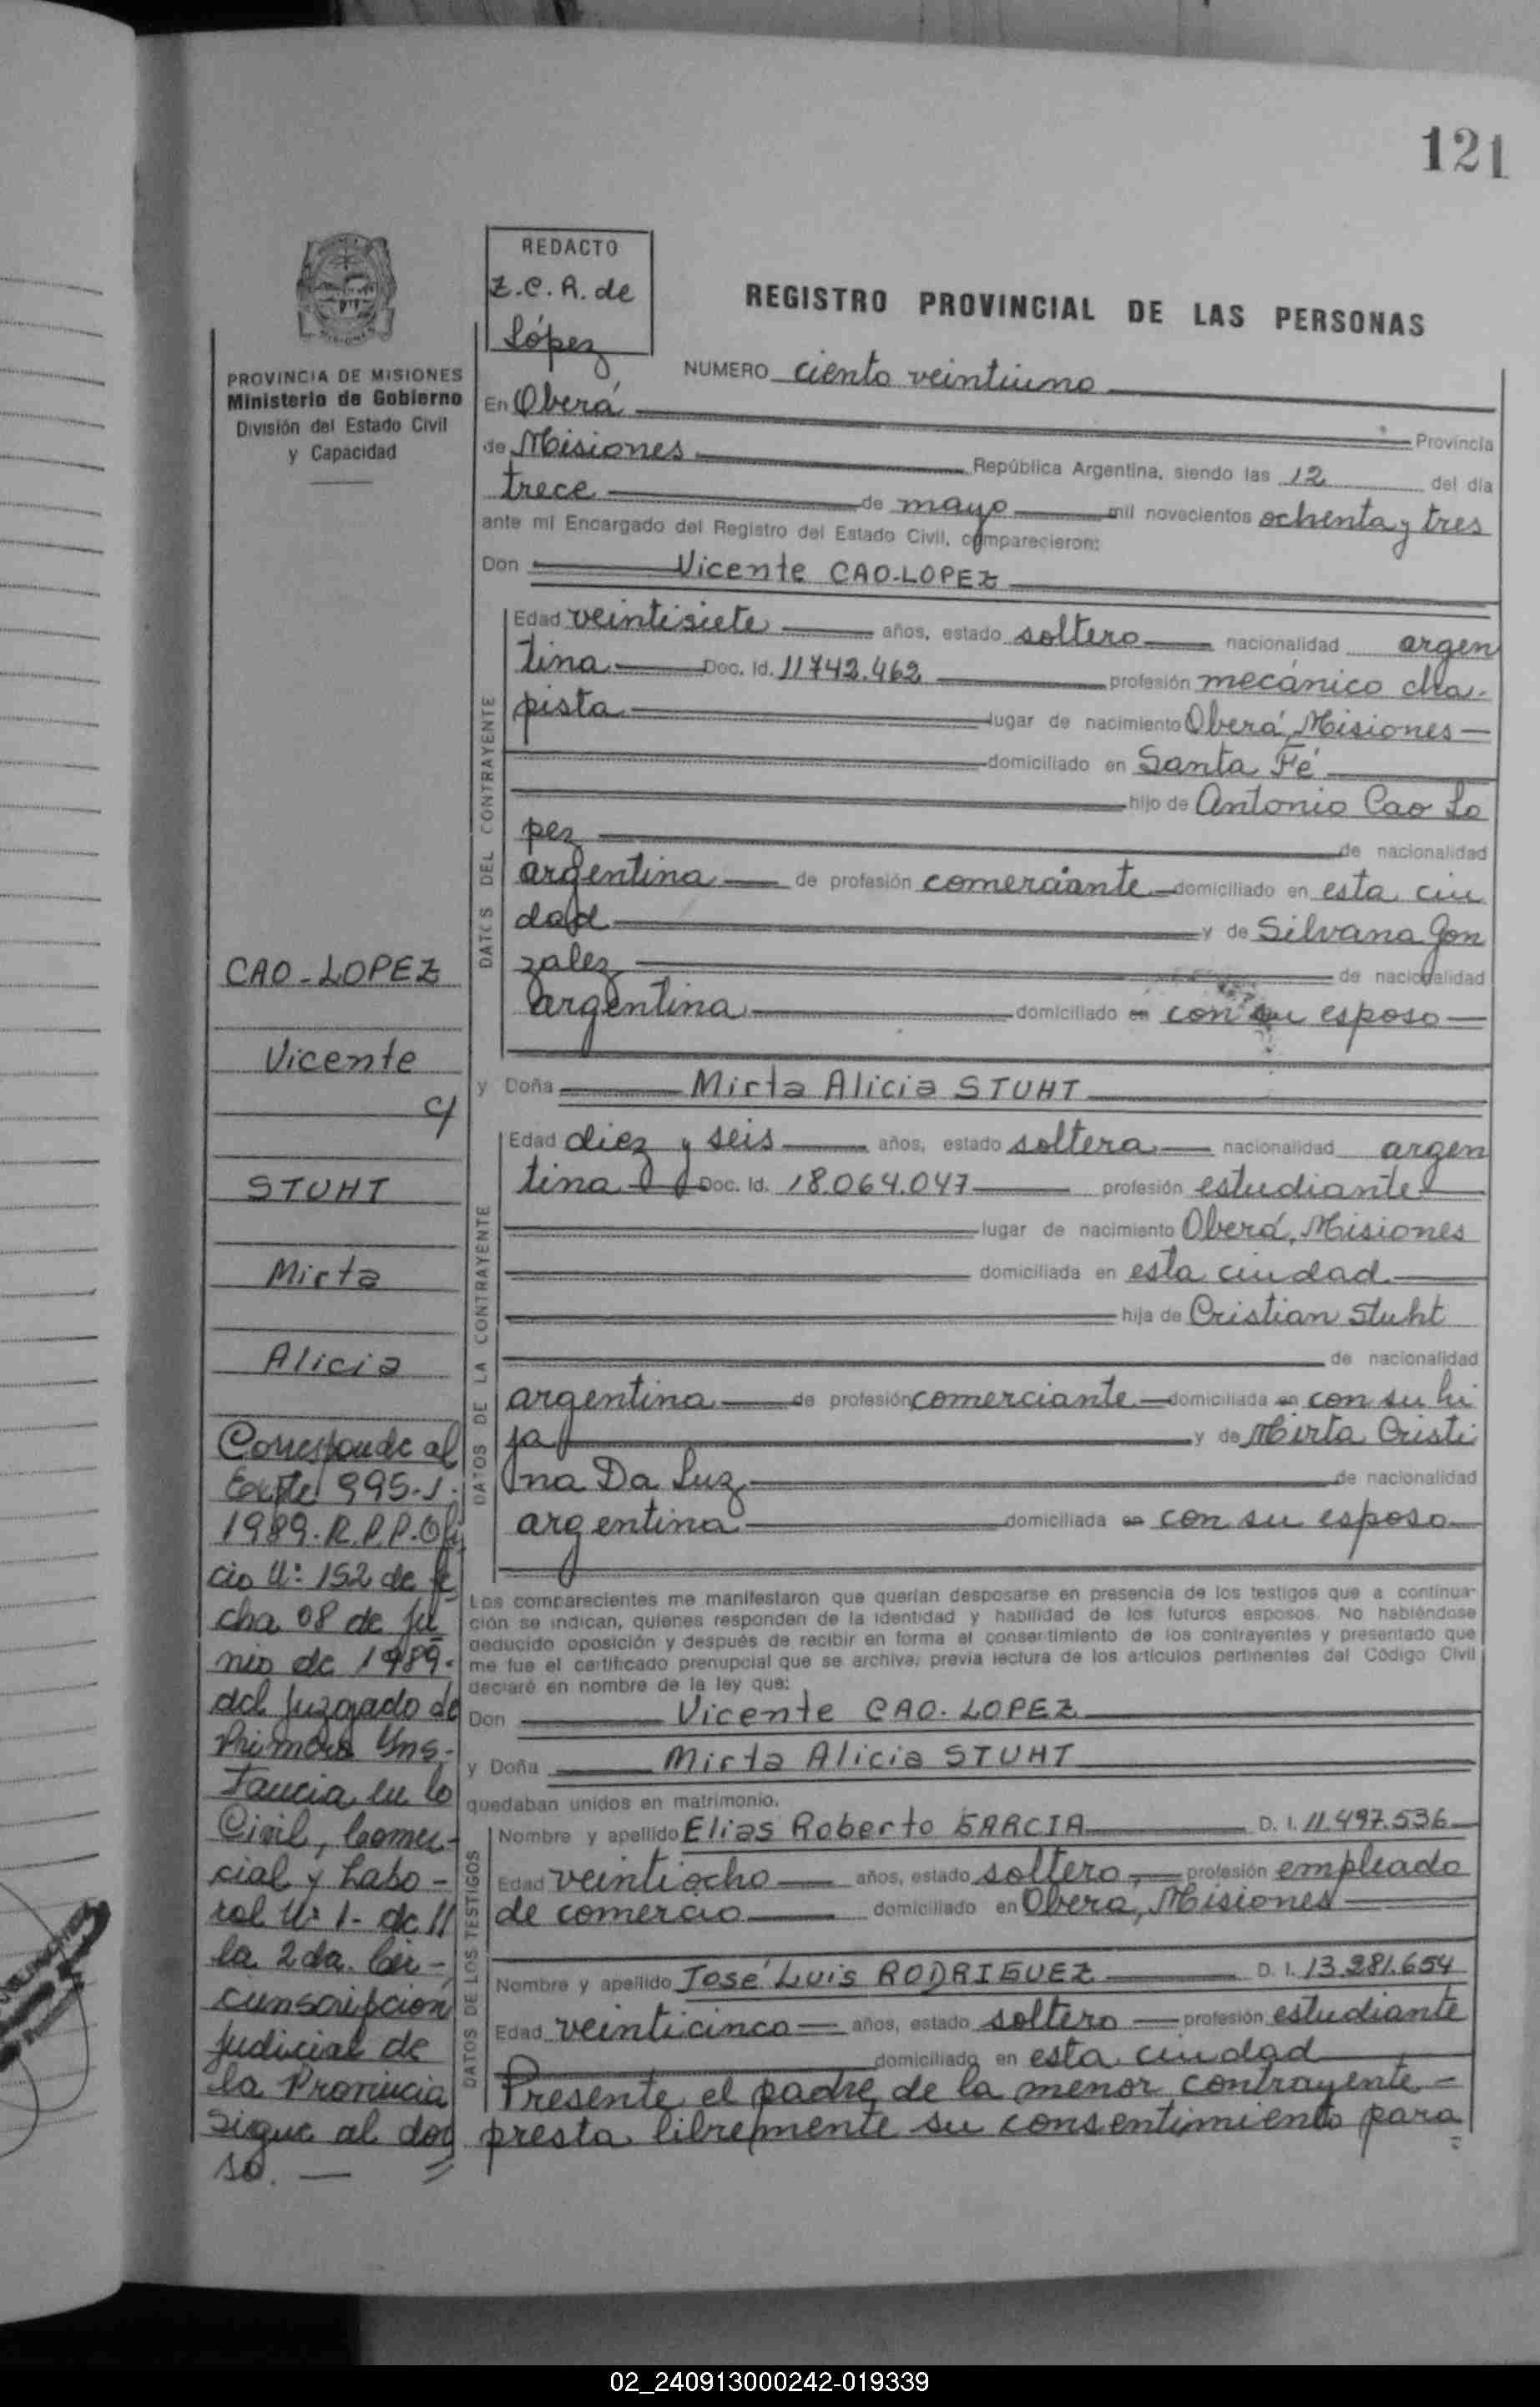 121
REDACTO
Z.C.R. de
López
REGISTRO PROVINCIAL DE LAS PERSONAS
PROVINCIA DE MISIONES
Ministerio de Gobierno
División del Estado Civil
y Capacidad
NUMERO ciento veintiuno
En Oberá Provincia
de Misiones República Argentina, siendo las 12 del día
trece de mayo mil novecientos ochenta y tres
ante mi Encargado del Registro del Estado Civil, comparecieron:
Don Vicente CAO-LOPEZ
DATOS DEL CONTRAYENTE
Edad veintisiete años, estado soltero nacionalidad argen
tina Doc. Id. 11742.462 profesión mecánico cha-
pista lugar de nacimiento Oberá, Misiones
domiciliado en Santa Fé
hijo de Antonio Cao Lo
pez de nacionalidad
argentina de profesión comerciante domiciliado en esta ciu
dad y de Silvana Gon
zalez de nacionalidad
argentina domiciliado en con su esposo
y Doña Mirta Alicia STUHT
DATOS DE LA CONTRAYENTE
Edad diez y seis años, estado soltera nacionalidad argen
tina Doc. Id. 18.064.047 profesión estudiante
lugar de nacimiento Oberá, Misiones
domiciliada en esta ciudad
hija de Cristian Stuht
de nacionalidad
argentina de profesión comerciante domiciliada en con su hi
ja y de Mirta Cristi
na Da Luz de nacionalidad
argentina domiciliada en con su esposo
Los comparecientes me manifestaron que querían desposarse en presencia de los testigos que a continua-
ción se indican, quienes responden de la identidad y habilidad de los futuros esposos. No habiéndose
deducido oposición y después de recibir en forma el consertimiento de los contrayentes y presentado que
me fue el certificado prenupcial que se archiva, previa lectura de los artículos pertinentes del Código Civil
declaré en nombre de la ley que:
Don Vicente CAO-LOPEZ
y Doña Mirta Alicia STUHT
quedaban unidos en matrimonio.
DATOS DE LOS TESTIGOS
Nombre y apellido Elias Roberto GARCIA D. I. 11.497.536
Edad veintiocho años, estado soltero, profesión empleado
de comercio domiciliado en Obera, Misiones
Nombre y apellido José Luis RODRIGUEZ D. I. 13.281.654
Edad veinticinco años, estado soltero profesión estudiante
domiciliado en esta ciudad
Presente el padre de la menor contrayente-
presta libremente su consentimiento para
CAO-LOPEZ
Vicente
c/
STUHT
Mirta
Alicia
Corresponde al
Expte 995-J-
1989-R.P.P. Ofi
cio Nº 152 de fe
cha 08 de ju
nio de 1989-
del Juzgado de
Primera Ins-
tancia en lo
Civil, Comer-
cial y Labo-
ral Nº 1- de
la 2da. Cir-
cunscripción
judicial de
la Provincia
Sigue al dor
so.
02_240913000242-019339